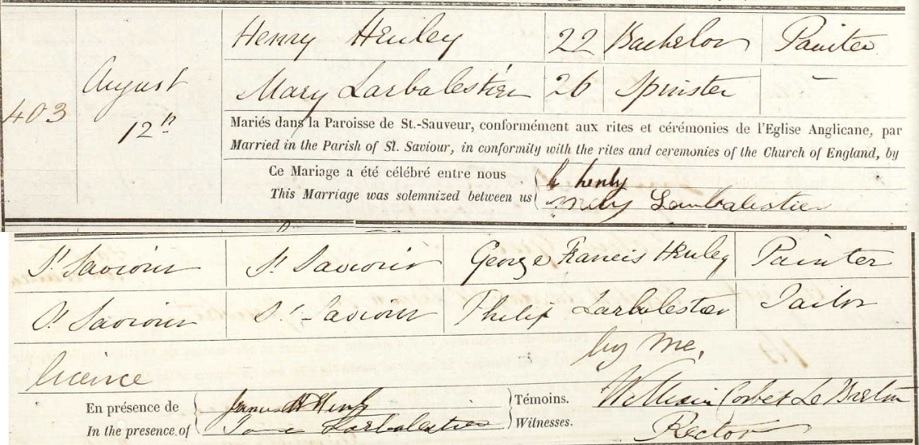 Henry Henley 22 Bachelor Painter
403 August 12th
Mary Larbalestier 26 Spinster -
Mariés dans la Paroisse de St.-Sauveur, conformément aux rites et cérémonies de l'Eglise Anglicane, par
Married in the Parish of St. Saviour, in conformity with the rites and ceremonies of the Church of England, by
Ce Mariage a été célébré entre nous
This Marriage was solemnized between us
h henly
Mary Larbalestier
St Saviour St Saviour George Francis Henley Painter
St Saviour St Saviour Philip Larbalestier Tailor
by me,
licence
En présence de
In the presence of
James H Henly
Jane Larbalestier
Témoins.
Witnesses.
William Corbet Le Breton
Rector